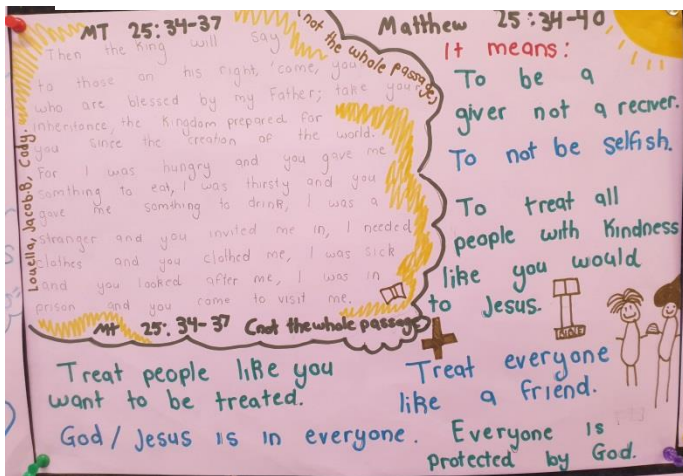 MT 25:34-37
(not the whole passage)
Then the King will say
to those on his right, 'come, you
who are blessed by my Father; take your
inheritance, the Kingdom prepared for
you since the creation of the world.
For I was hungry and you gave me
somthing to eat, I was thirsty and you
gave me somthing to drink, I was a
stranger and you invited me in, I needed
clothes and you clothed me, I was sick
and you looked after me, I was in
prison and you come to visit me.
MT 25:34-37 (not the whole passage)
Louella, Jacob.B, Cody.
Matthew 25:34-40
It means:
To be a
giver not a reciver.
To not be selfish.
To treat all
people with Kindness
like you would
to Jesus.
Treat everyone
like a friend.
Treat people like you
want to be treated.
God/Jesus is in everyone.
Everyone is
protected by God.